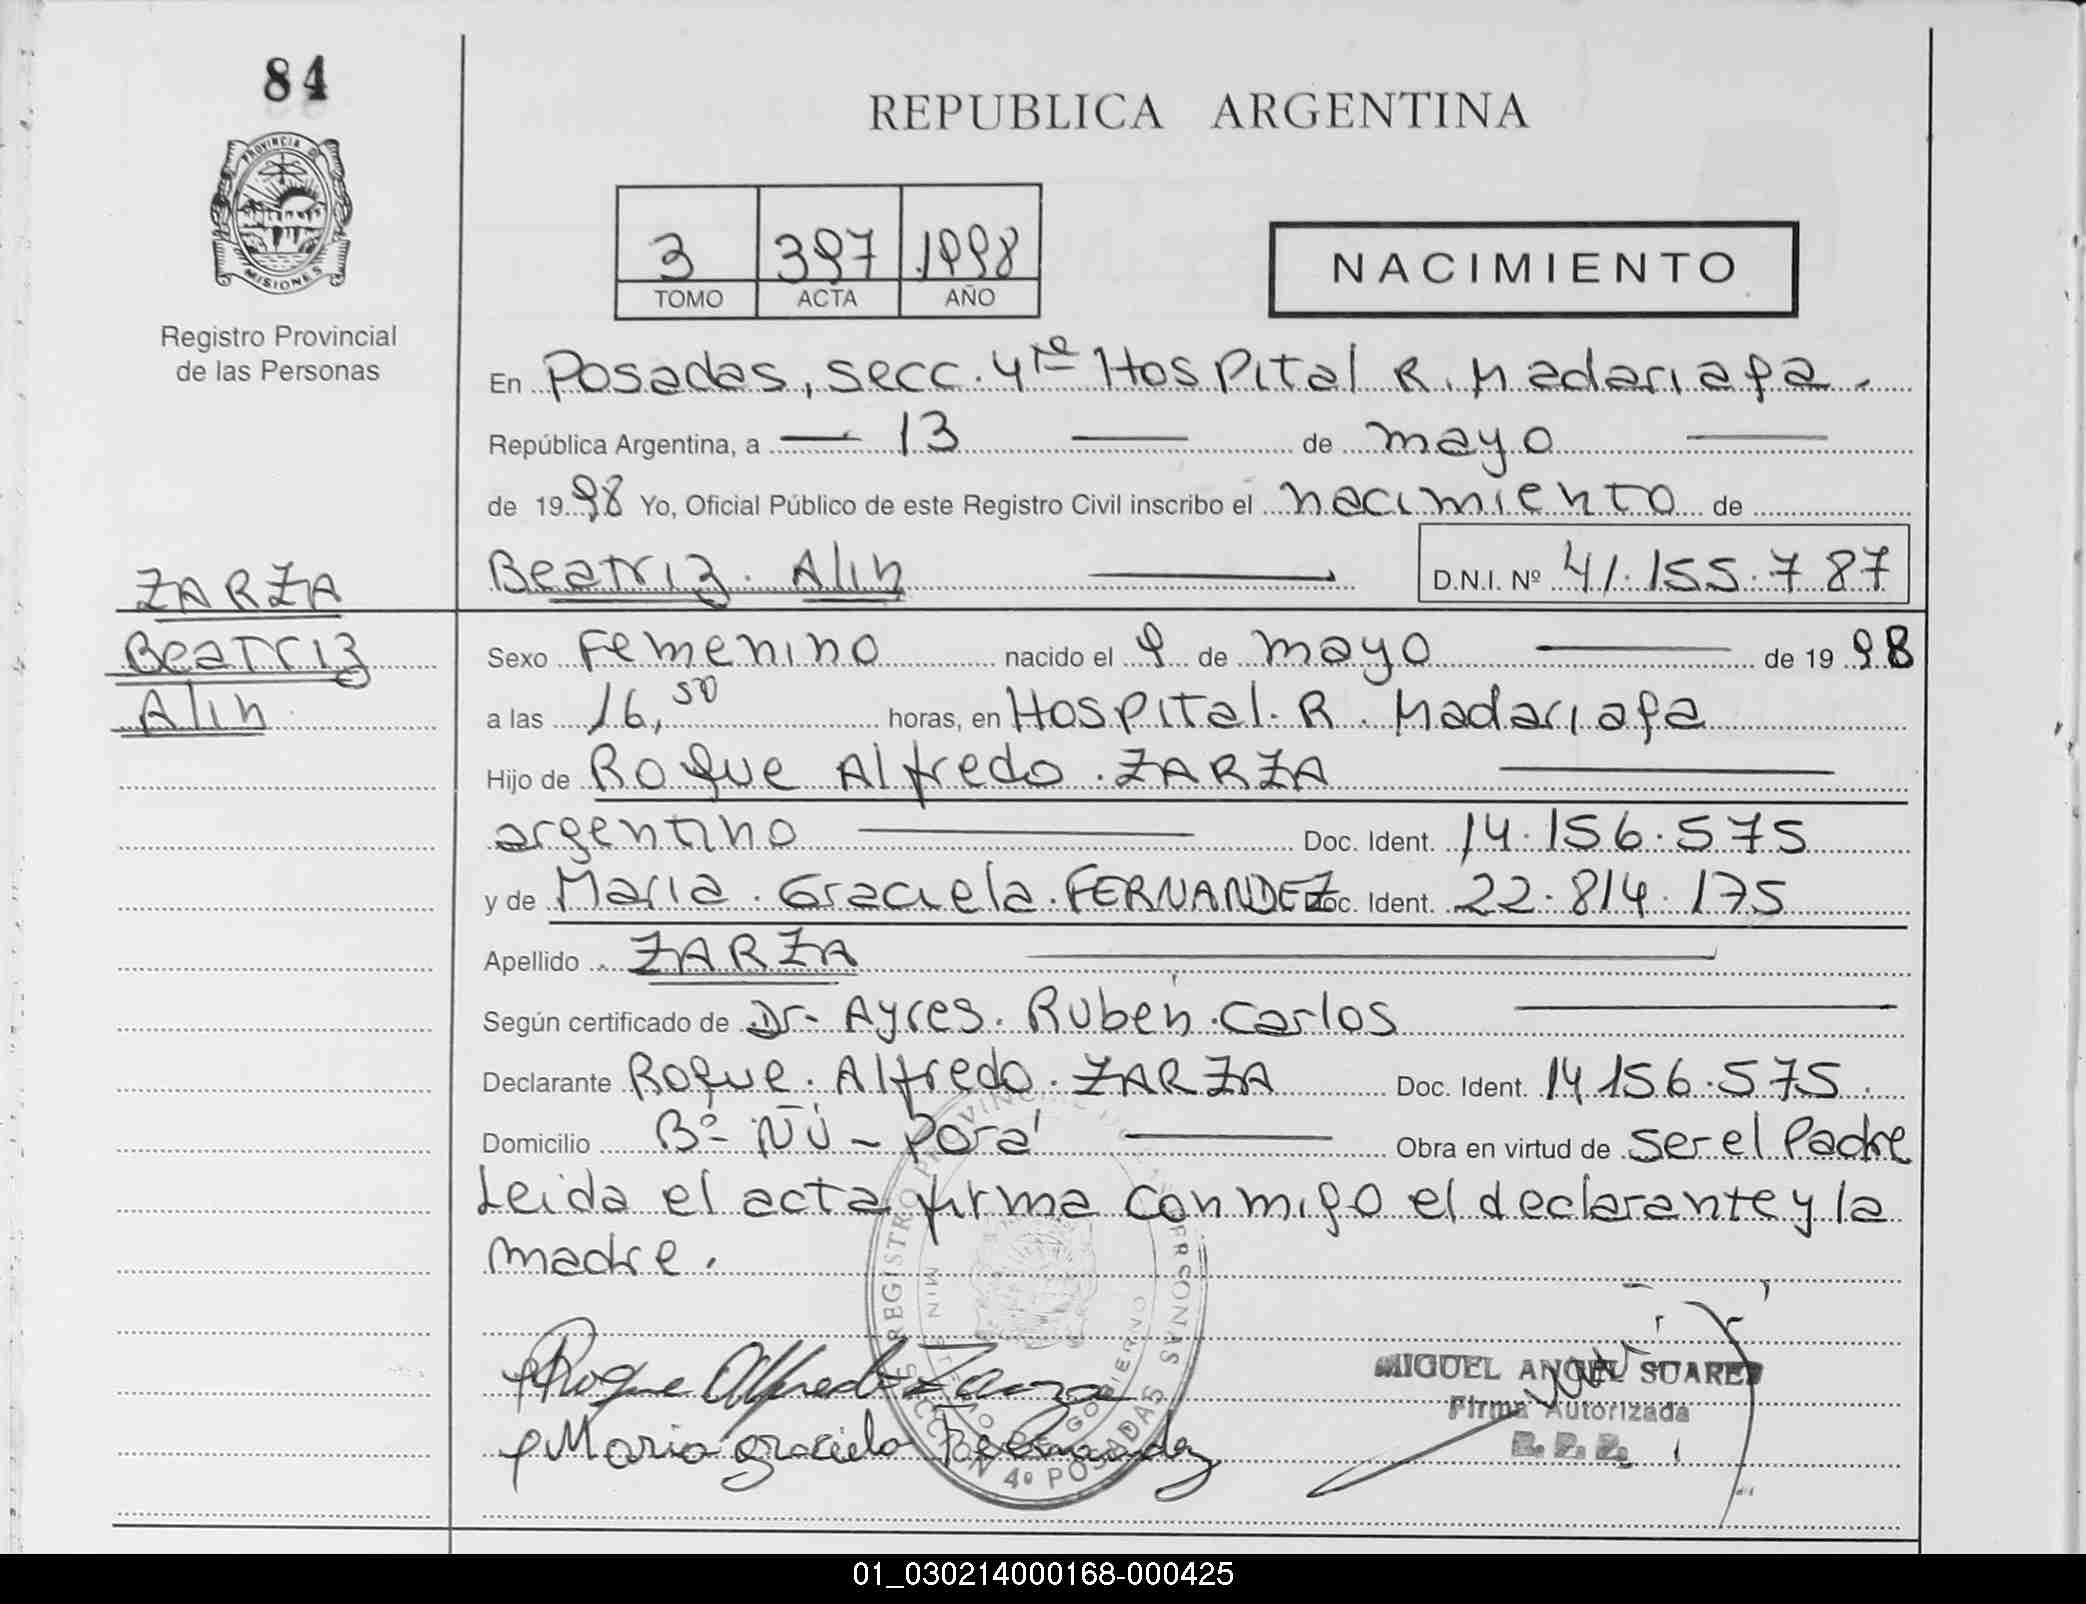 84
PROVINCIA DE
MISIONES
Registro Provincial
de las Personas
REPUBLICA ARGENTINA
3 397 1998
TOMO ACTA AÑO
NACIMIENTO
En Posadas, secc. 4ta Hospital R. Madariaga.
República Argentina, a — 13 — de mayo —
de 1998 Yo, Oficial Público de este Registro Civil inscribo el nacimiento de
Beatriz Alin — D.N.I. Nº 41.155.787
ZARZA
Beatriz
Alin
Sexo Femenino nacido el 9 de mayo — de 1998
a las 16,50 horas, en Hospital R. Madariaga
Hijo de Roque Alfredo ZARZA —
argentino — Doc. Ident. 14.156.575
y de Maria Graciela FERNANDEZ Doc. Ident. 22.814.175
Apellido ZARZA —
Según certificado de Dr. Ayres Ruben Carlos —
Declarante Roque Alfredo ZARZA Doc. Ident. 14.156.575.
Domicilio Bº ÑU - Porá — Obra en virtud de ser el Padre
Leida el acta firma conmigo el declarante y la
madre.
Roque Alfredo Zarza
Maria Graciela Fernandez
REGISTRO PROVINCIAL PERSONAS
SECCION 4º POSADAS
GOBIERNO
MIGUEL ANGEL SUAREZ
Firma Autorizada
R. P. P.
01_030214000168-000425